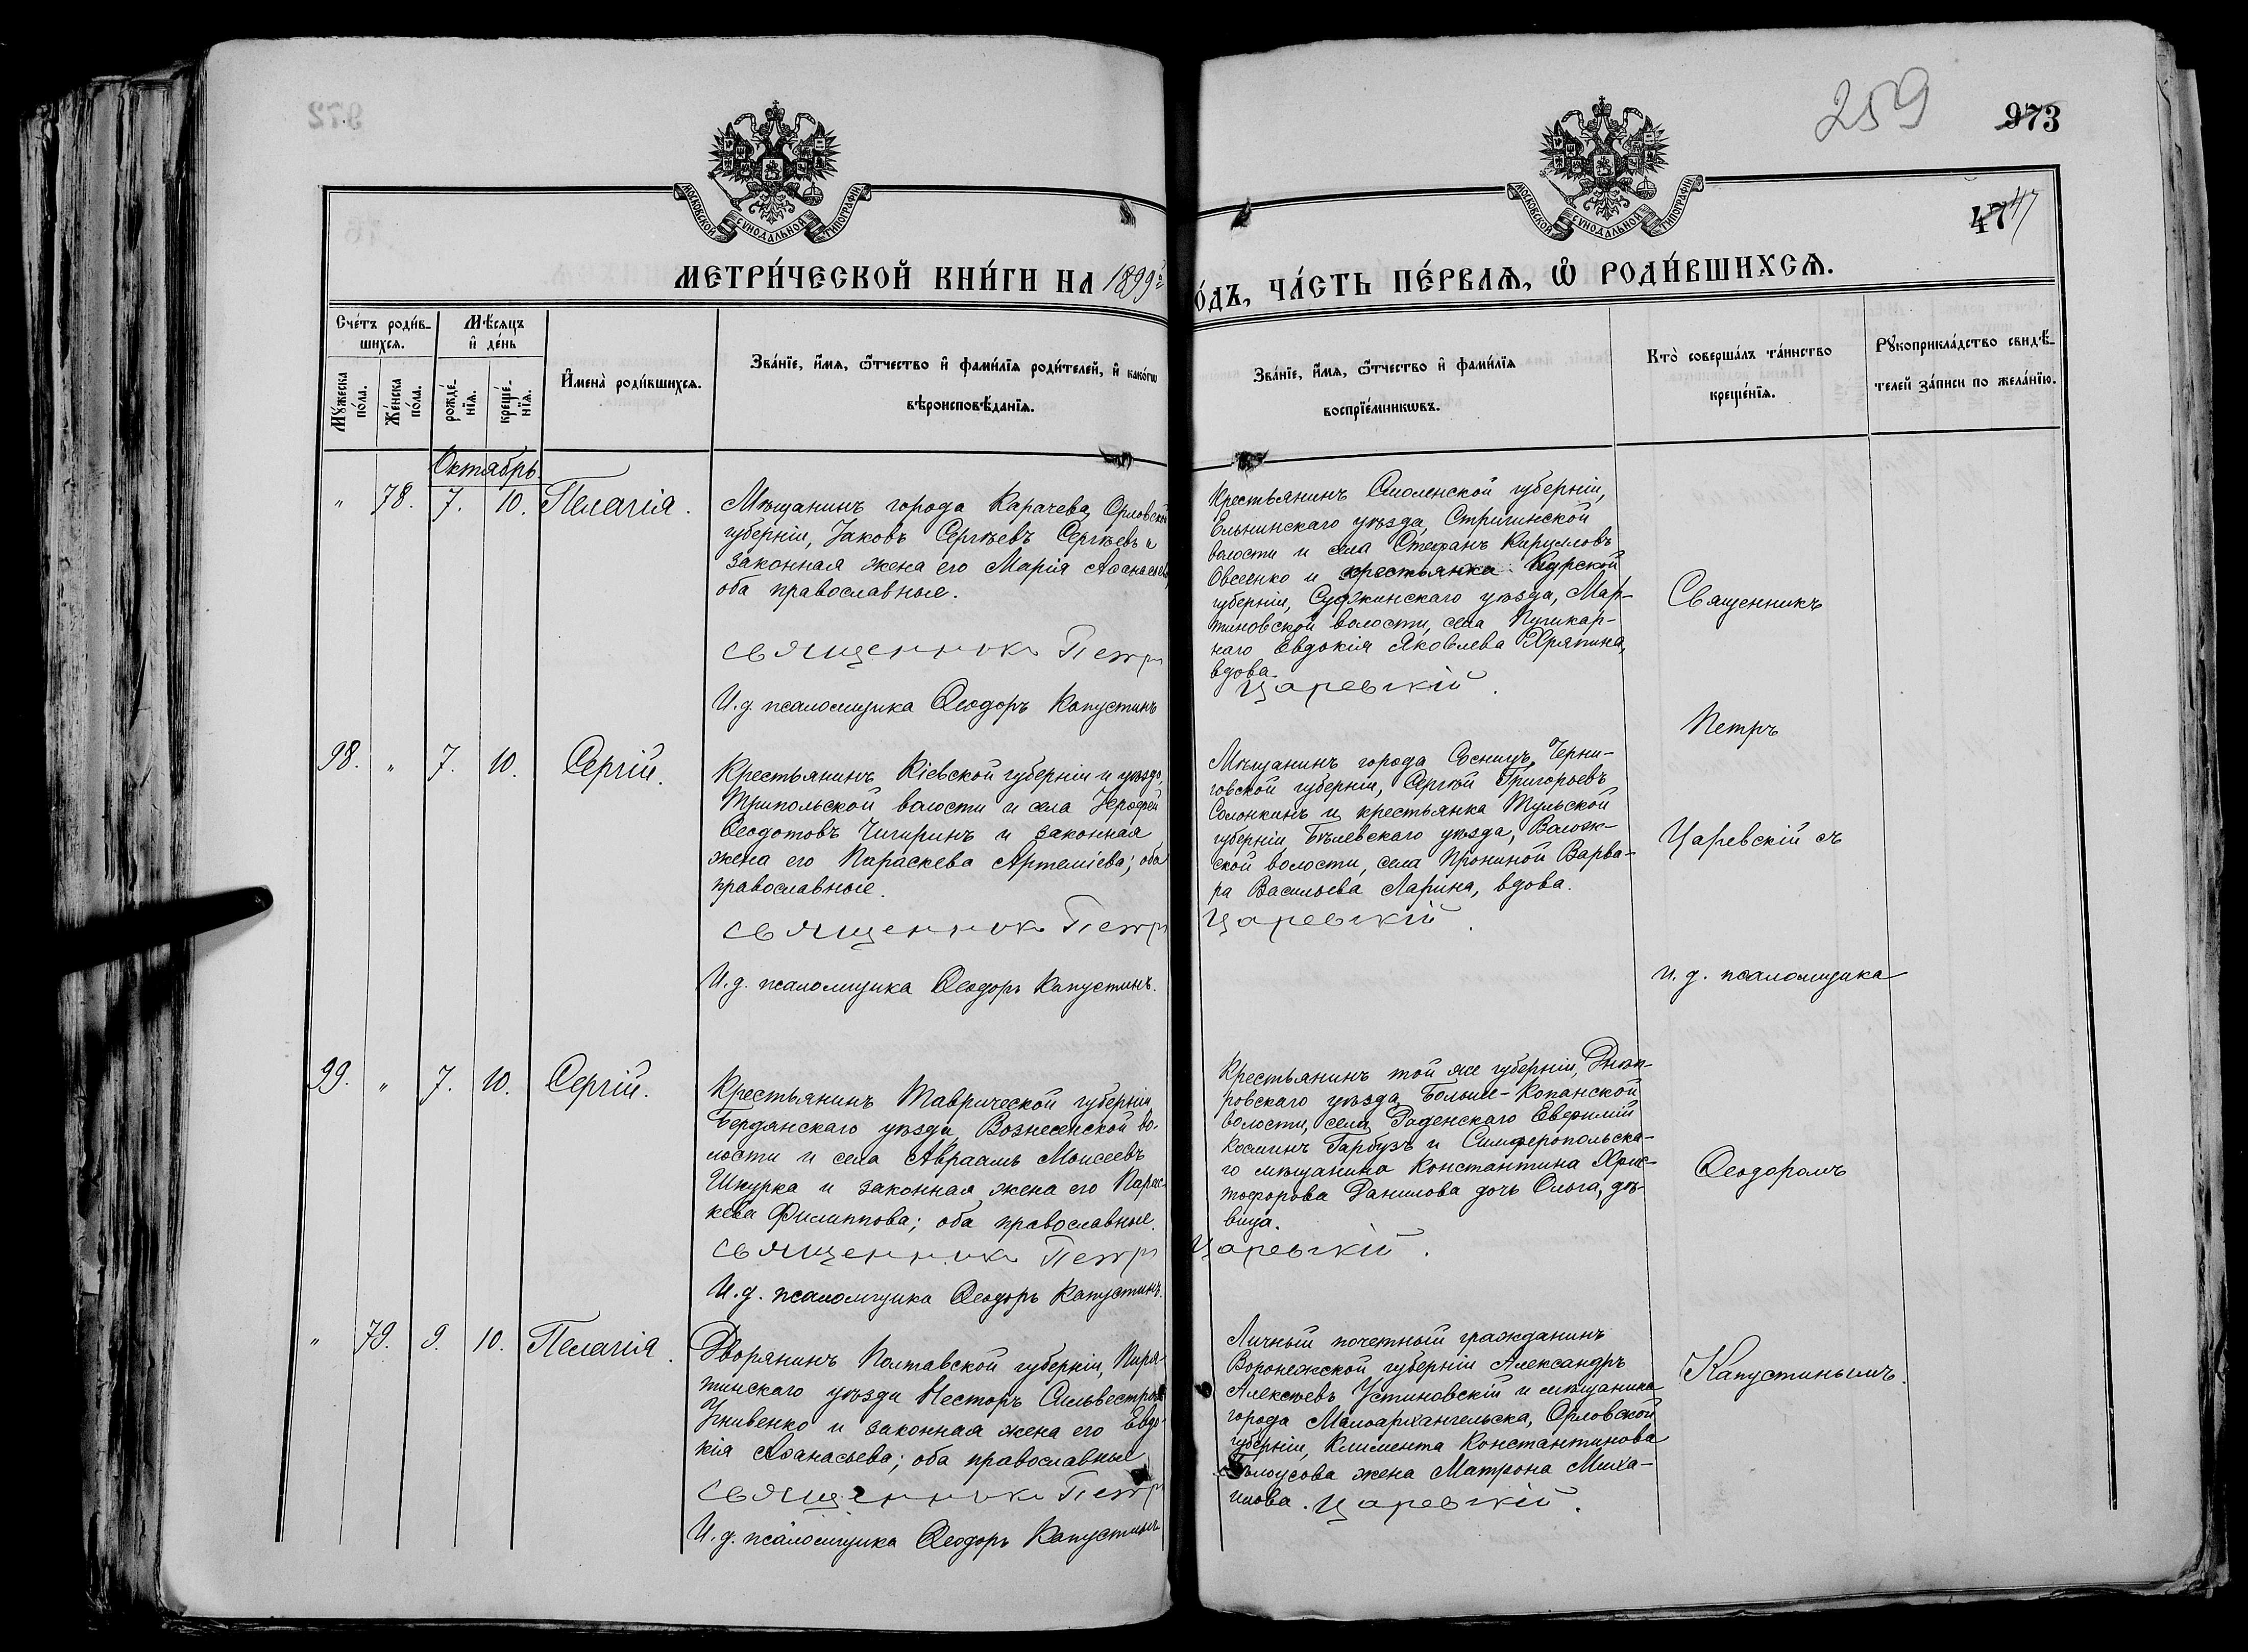 972
259
973
МОСКОВСКОЙ СѴНОДАЛЬНОЙ ТИПОГРАФІИ
МОСКОВСКОЙ СѴНОДАЛЬНОЙ ТИПОГРАФІИ
47 47
МЕТРИ́ЧЕСКОЙ КНИ́ГИ НА 1899й
О́ДЪ, ЧА́СТЬ ПЕ́РВАѦ, Ѽ РОДИ́ВШИХСѦ.
Сче́тъ роди́в-
шихсѧ.
Мѣ́сѧцъ
и҆ де́нь
Мꙋ́жеска по́ла.
Же́нска по́ла.
рожде́-
нїѧ.
креще́-
нїѧ.
И҆мена̀ роди́вшихсѧ.
Зва́нїе, и҆́мѧ, ѻ҆́тчество и҆ фами́лїѧ роди́телей, и҆ како́гѡ
вѣроисповѣ́данїѧ.
Зва́нїе, и҆́мѧ, ѻ҆́тчество и҆ фами́лїѧ
воспрїе́мникѡвъ.
Кто̀ соверша́лъ та́инство
креще́нїѧ.
Рꙋкоприкла́дство свидѣ́-
телей за́писи по жела́нїю.
Октябрь.
" 78. 7. 10. Пелагія.
Мѣщанинъ города Карачева, Орловской
губерніи, Іаковъ Сергѣевъ Сергѣевъ и
законная жена его Марія Аѳанасьева,
оба православные.
священникъ Петръ
И. д. псаломщика Ѳеодоръ Капустинъ
Крестьянинъ Смоленской губерніи,
Ельнинскаго уѣзда, Стригинской
волости и села Стефанъ Кирилловъ
Овсеенко и крестьянка Курской
губерніи, Суджинскаго уѣзда, Мар-
тиновской волости, села Пушкар-
наго Евдокія Яковлева Хряпина,
вдова.
Царевскій.
98. " 7. 10. Сергій.
Крестьянинъ Кіевской губерніи и уѣзда,
Трипольской волости и села Іерофей
Ѳеодотовъ Чигиринъ и законная
жена его Параскева Артеміева; оба
православные.
священникъ Петръ
И. д. псаломщика Ѳеодоръ Капустинъ.
Мѣщанинъ города Сосницъ, Черни-
говской губерніи, Сергѣй Григорьевъ
Солонкинъ и крестьянка Тульской
губерніи, Бѣлевскаго уѣзда,
ской волости, села Прониной Варва-
ра Васильева Ларина, вдова.
Царевскій.
99. " 7. 10. Сергій.
Крестьянинъ Таврической губерніи
Бердянскаго уѣзда Вознесенской во-
лости и села Авраамъ Моисеевъ
Шкурка и законная жена его Парас-
кева Филиппова; оба православные.
священникъ Петръ
И. д. псаломщика Ѳеодоръ Капустинъ.
Крестьянинъ той же губерніи, Днѣп-
ровскаго уѣзда, Больше-Копанской
волости, села Раденскаго Евфимій
Косминъ Гарбузъ и Симферопольска-
го мѣщанина Константина Хрис-
тофорова Данилова дочь Ольга, дѣ-
вица.
Царевскій.
" 79. 9. 10. Пелагія.
Дворянинъ Полтавской губерніи, Пиря-
тинскаго уѣзда Несторъ Сильвестровъ
Гнивенко и законная жена его Евдо-
кія Аѳанасьева; оба православные
священникъ Петръ
И. д. псаломщика Ѳеодоръ Капустинъ
Личный почетный гражданинъ
Воронежской губерніи Александръ
Алексѣевъ Устиновскій и мѣщанина
города Малоархангельска, Орловской
губерніи, Климента Константинова
Бѣлоусова жена Матрона Миха-
илова. Царевскій.
Священникъ
Петръ
Царевскій съ
и. д. псаломщика
Ѳеодоромъ
Капустинымъ.